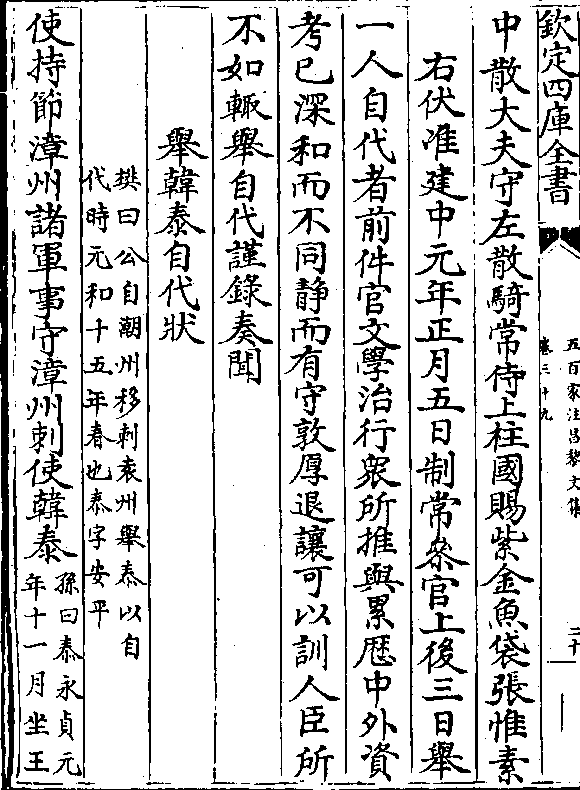 欽定四庫全書
五百家注昌黎文集
卷三十九
二十
中散大夫守左散騎常侍上柱國賜紫金魚袋張惟素
右伏准建中元年正月五日制常叅官上後三日舉
一人自代者前件官文學治行衆所推與累歴中外資
考已深和而不同静而有守敦厚退讓可以訓人臣所
不如輙舉自代謹錄奏聞
舉韓泰自代狀
樊曰公自潮州移刺袁州舉泰以自
代時元和十五年春也泰字安平
使持節漳州諸軍事守漳州刺使韓泰
孫曰泰永貞元
年十一月坐王